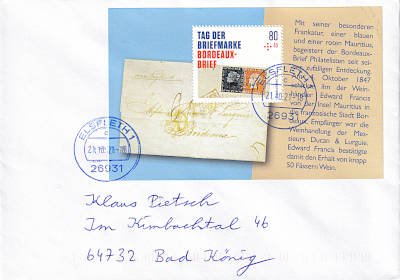 TAG DER
BRIEFMARKE
BORDEAUX-
BRIEF
80
+40
Mit seiner besonderen
Frankatur, einer blauen
und einer roten Mauritius,
begeistert der Bordeaux-
Brief Philatelisten seit sei-
zufälligen Entdeckung.
Oktober 1847
ihn der Wein-
Edward Francis
von der Insel Mauritius in
die französische Stadt Bor-
deaux. Empfänger war die
Weinhandlung der Mes-
sieurs Ducan & Lurguie.
Edward Francis bestätigte
damit den Erhalt von knapp
50 Fässern Wein.
Bordeaux
ELSFLETH 1
c
26931
ELSFLETH
26931
Klaus Pietsch
Im Kimbachtal 46
64732 Bad König